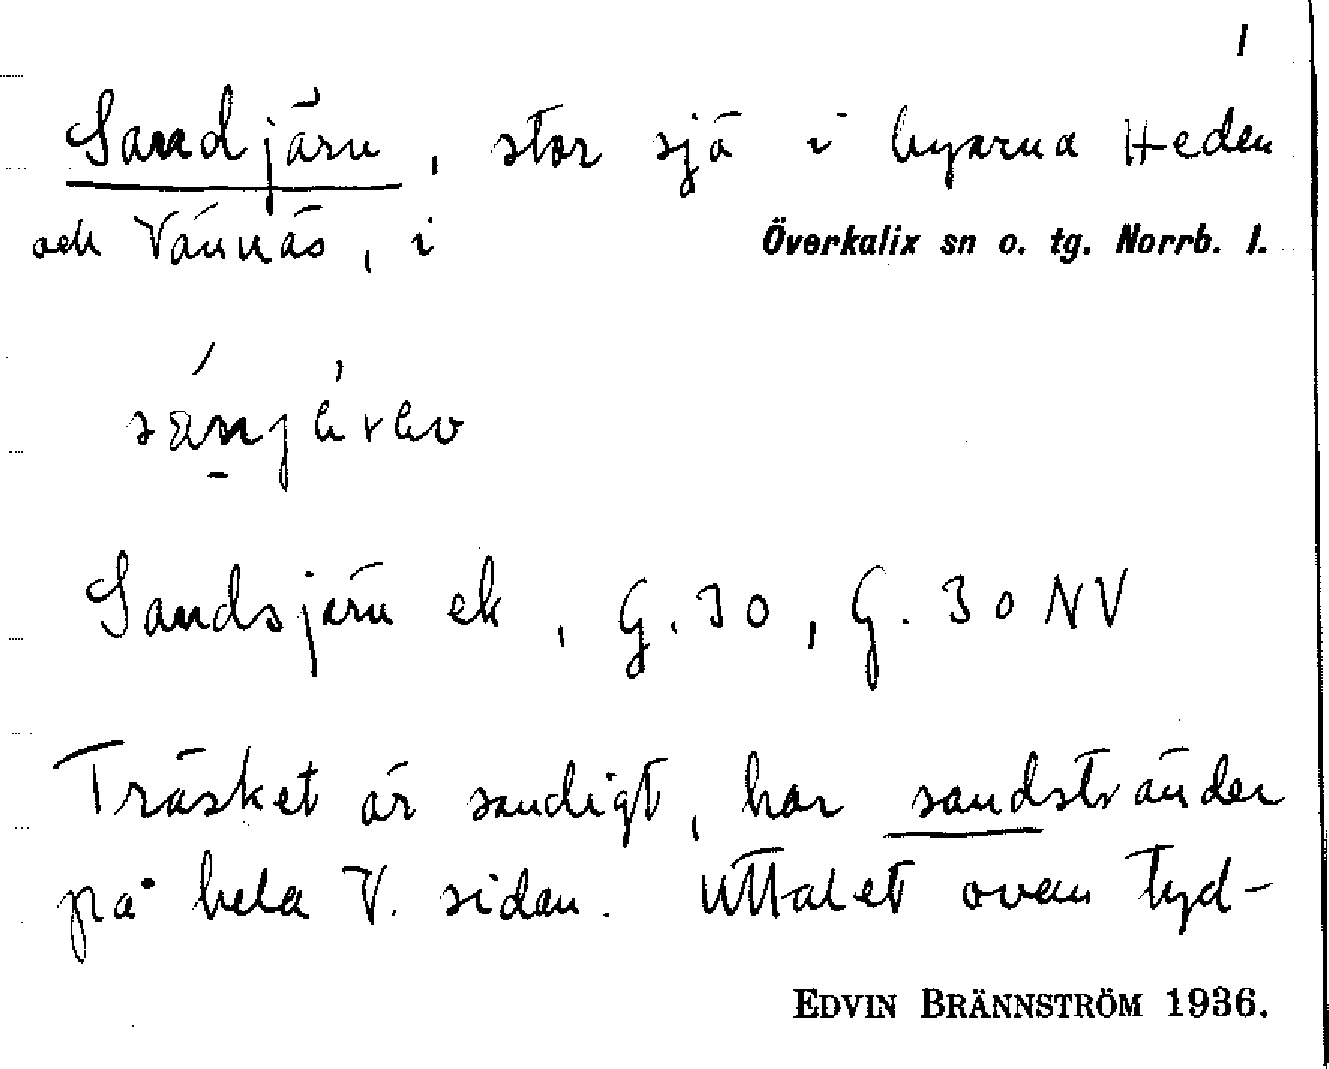 1
Sandjärv, stor sjö i byarna Heden
och Vännäs, i Överkalix sn o. tg. Norrb. l.
Sandsjärv ek, G. 30, G. 30 NV
Träsket är sandigt, har sandstränder
på hela V. sidan. Uttalet ovan tyd-
EDVIN BRÄNNSTRÖM 1936.